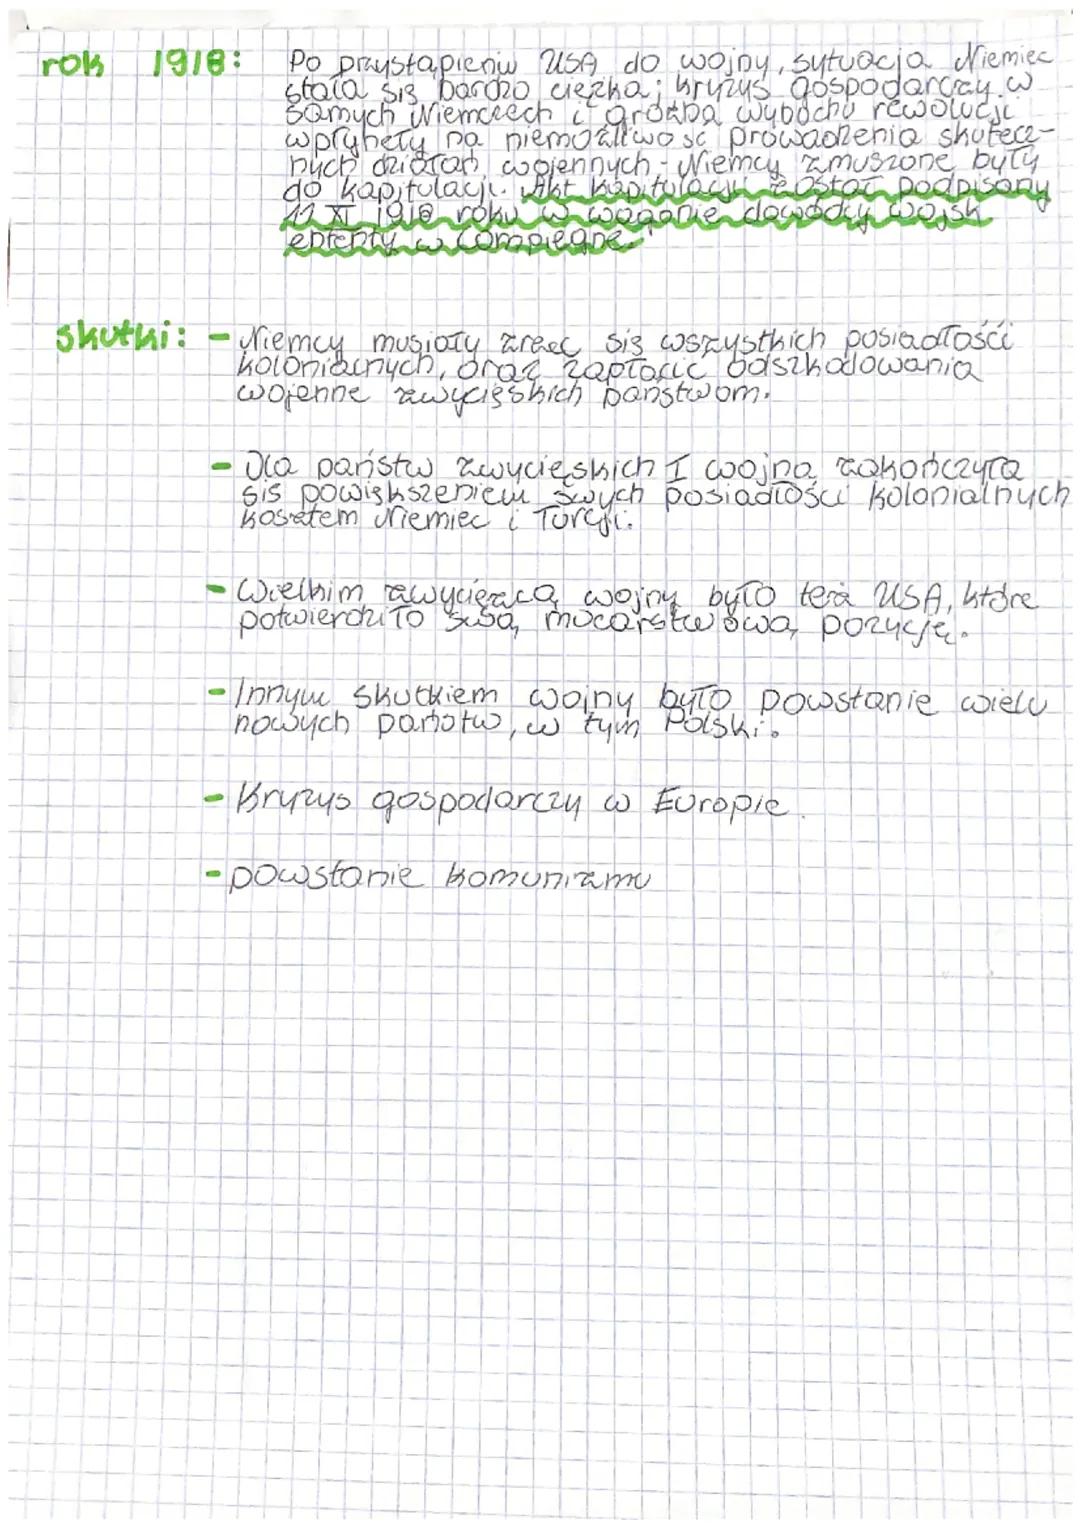 rok 1918: Po przystąpieniu USA do wojny, sytuacja Niemiec
stała się bardzo ciężka; kryzys gospodarczy w
samych Niemczech i groźba wybuchu rewolucji
wpłynęły na niemożliwość prowadzenia skutecz-
nych działań wojennych - Niemcy zmuszone były
do kapitulacji. Akt kapitulacji został podpisany
11 XI 1918 roku w wagonie dowódcy wojsk
ententy w Compiegne.
skutki: - Niemcy musiały zrzec się wszystkich posiadłości
kolonialnych, oraz zapłacić odszkodowania
wojenne zwycięskich państwom.
- Dla państw zwycięskich I wojna zakończyła
się powiększeniem swych posiadłości kolonialnych
kosztem Niemiec i Turcji.
- Wielkim zwycięzcą wojny było też USA, które
potwierdziło swą mocarstwową pozycję.
- Innym skutkiem wojny było powstanie wielu
nowych państw, w tym Polski.
- Kryzys gospodarczy w Europie.
- powstanie komunizmu